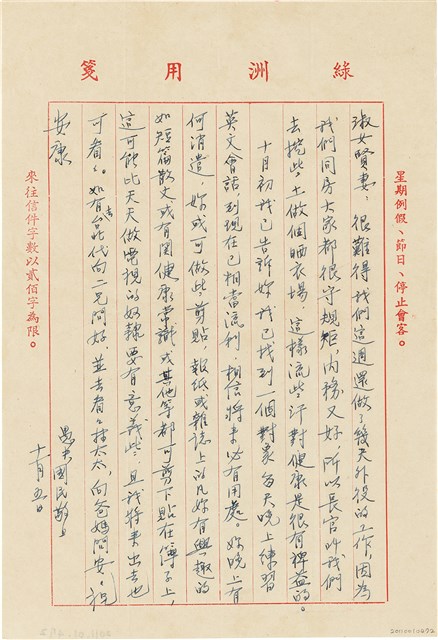 綠洲用箋
星期例假、節日、停止會客。
淑女賢妻：很難得我們這週還做了幾天外役的工作，因為
我們同房大家都很守規矩，內務又好，所以長官叫我們
去挖些土做個晒衣場。這樣流些汗對健康是很有裨益的。
十月初我已告訴妳我已找到一個對象每天晚上練習
英文會話，到現在已相當流利，相信將來必有用處。妳晚上有
何消遣，妳或可做些剪貼，報紙或雜誌上的凡妳有興趣的
如短篇散文或有関健康常識或其他等都可剪下貼在簿子上，
這可能比天天做電視的奴隸要有意義些，且我將來出去也
可看看。如有去北代向二兄問好，並去看看 太太，向爸媽問安。祝
安康
愚夫國民敬上
十一月五日
來往信件字數以貳佰字為限。